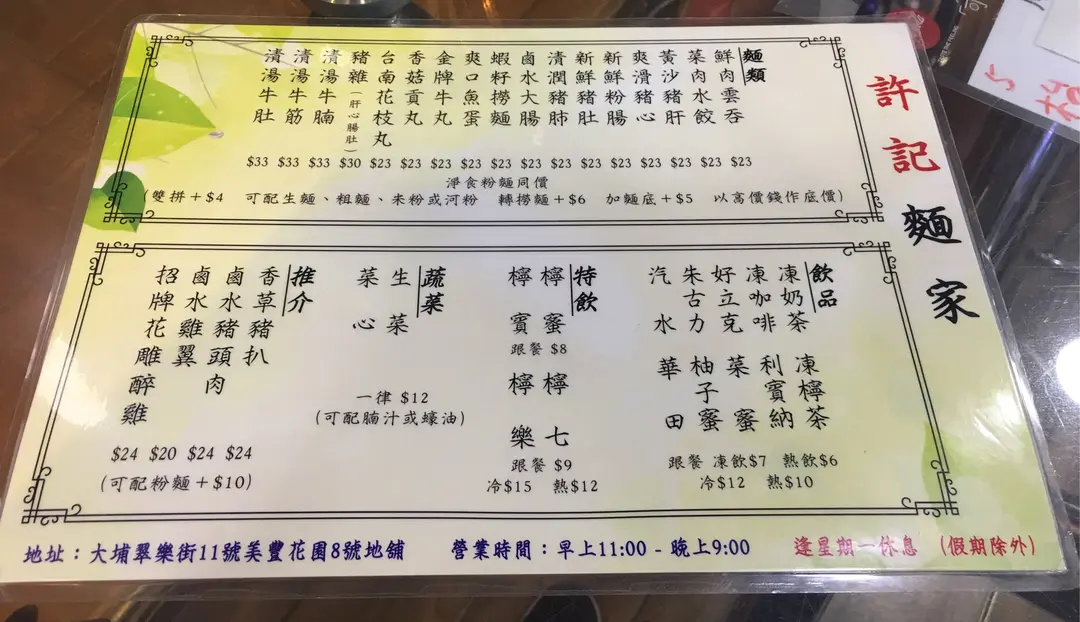 許記麵家
麵類
鮮肉雲吞
菜肉水餃
黃沙豬肝
爽滑豬心
新鮮粉腸
新鮮豬肚
清潤豬肺
鹵水大腸
蝦籽撈麵
爽口魚蛋
金牌牛丸
香菇貢丸
台南花枝丸
豬雜(肝心腸肚)
清湯牛腩
清湯牛筋
清湯牛肚
$33 $33 $33 $30 $23 $23 $23 $23 $23 $23 $23 $23 $23 $23 $23 $23 $23
淨食粉麵同價
(雙拼+$4 可配生麵、粗麵、米粉或河粉 轉撈麵+$6 加麵底+$5 以高價錢作底價)
飲品
凍奶茶
凍咖啡
好立克
朱古力
汽水
凍檸茶
利賓納
菜蜜
柚子蜜
華田
跟餐 凍飲$7 熱飲$6
冷$12 熱$10
特飲
檸蜜
檸賓
跟餐 $8
檸七
檸樂
跟餐 $9
冷$15 熱$12
蔬菜
生菜
菜心
一律 $12
(可配腩汁或蠔油)
推介
香草豬扒
鹵水豬頭肉
鹵水雞翼
招牌花雕醉雞
$24 $20 $24 $24
(可配粉麵+$10)
地址：大埔翠樂街11號美豐花園8號地舖 營業時間：早上11:00 - 晚上9:00 逢星期一休息 (假期除外)